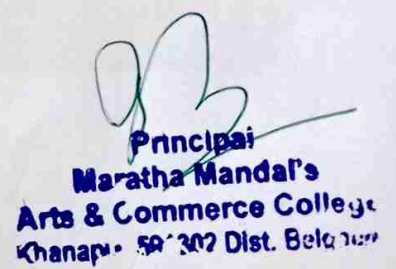 Principal
Maratha Mandal's
Arts & Commerce College
Khanapur 591302 Dist. Belgaum